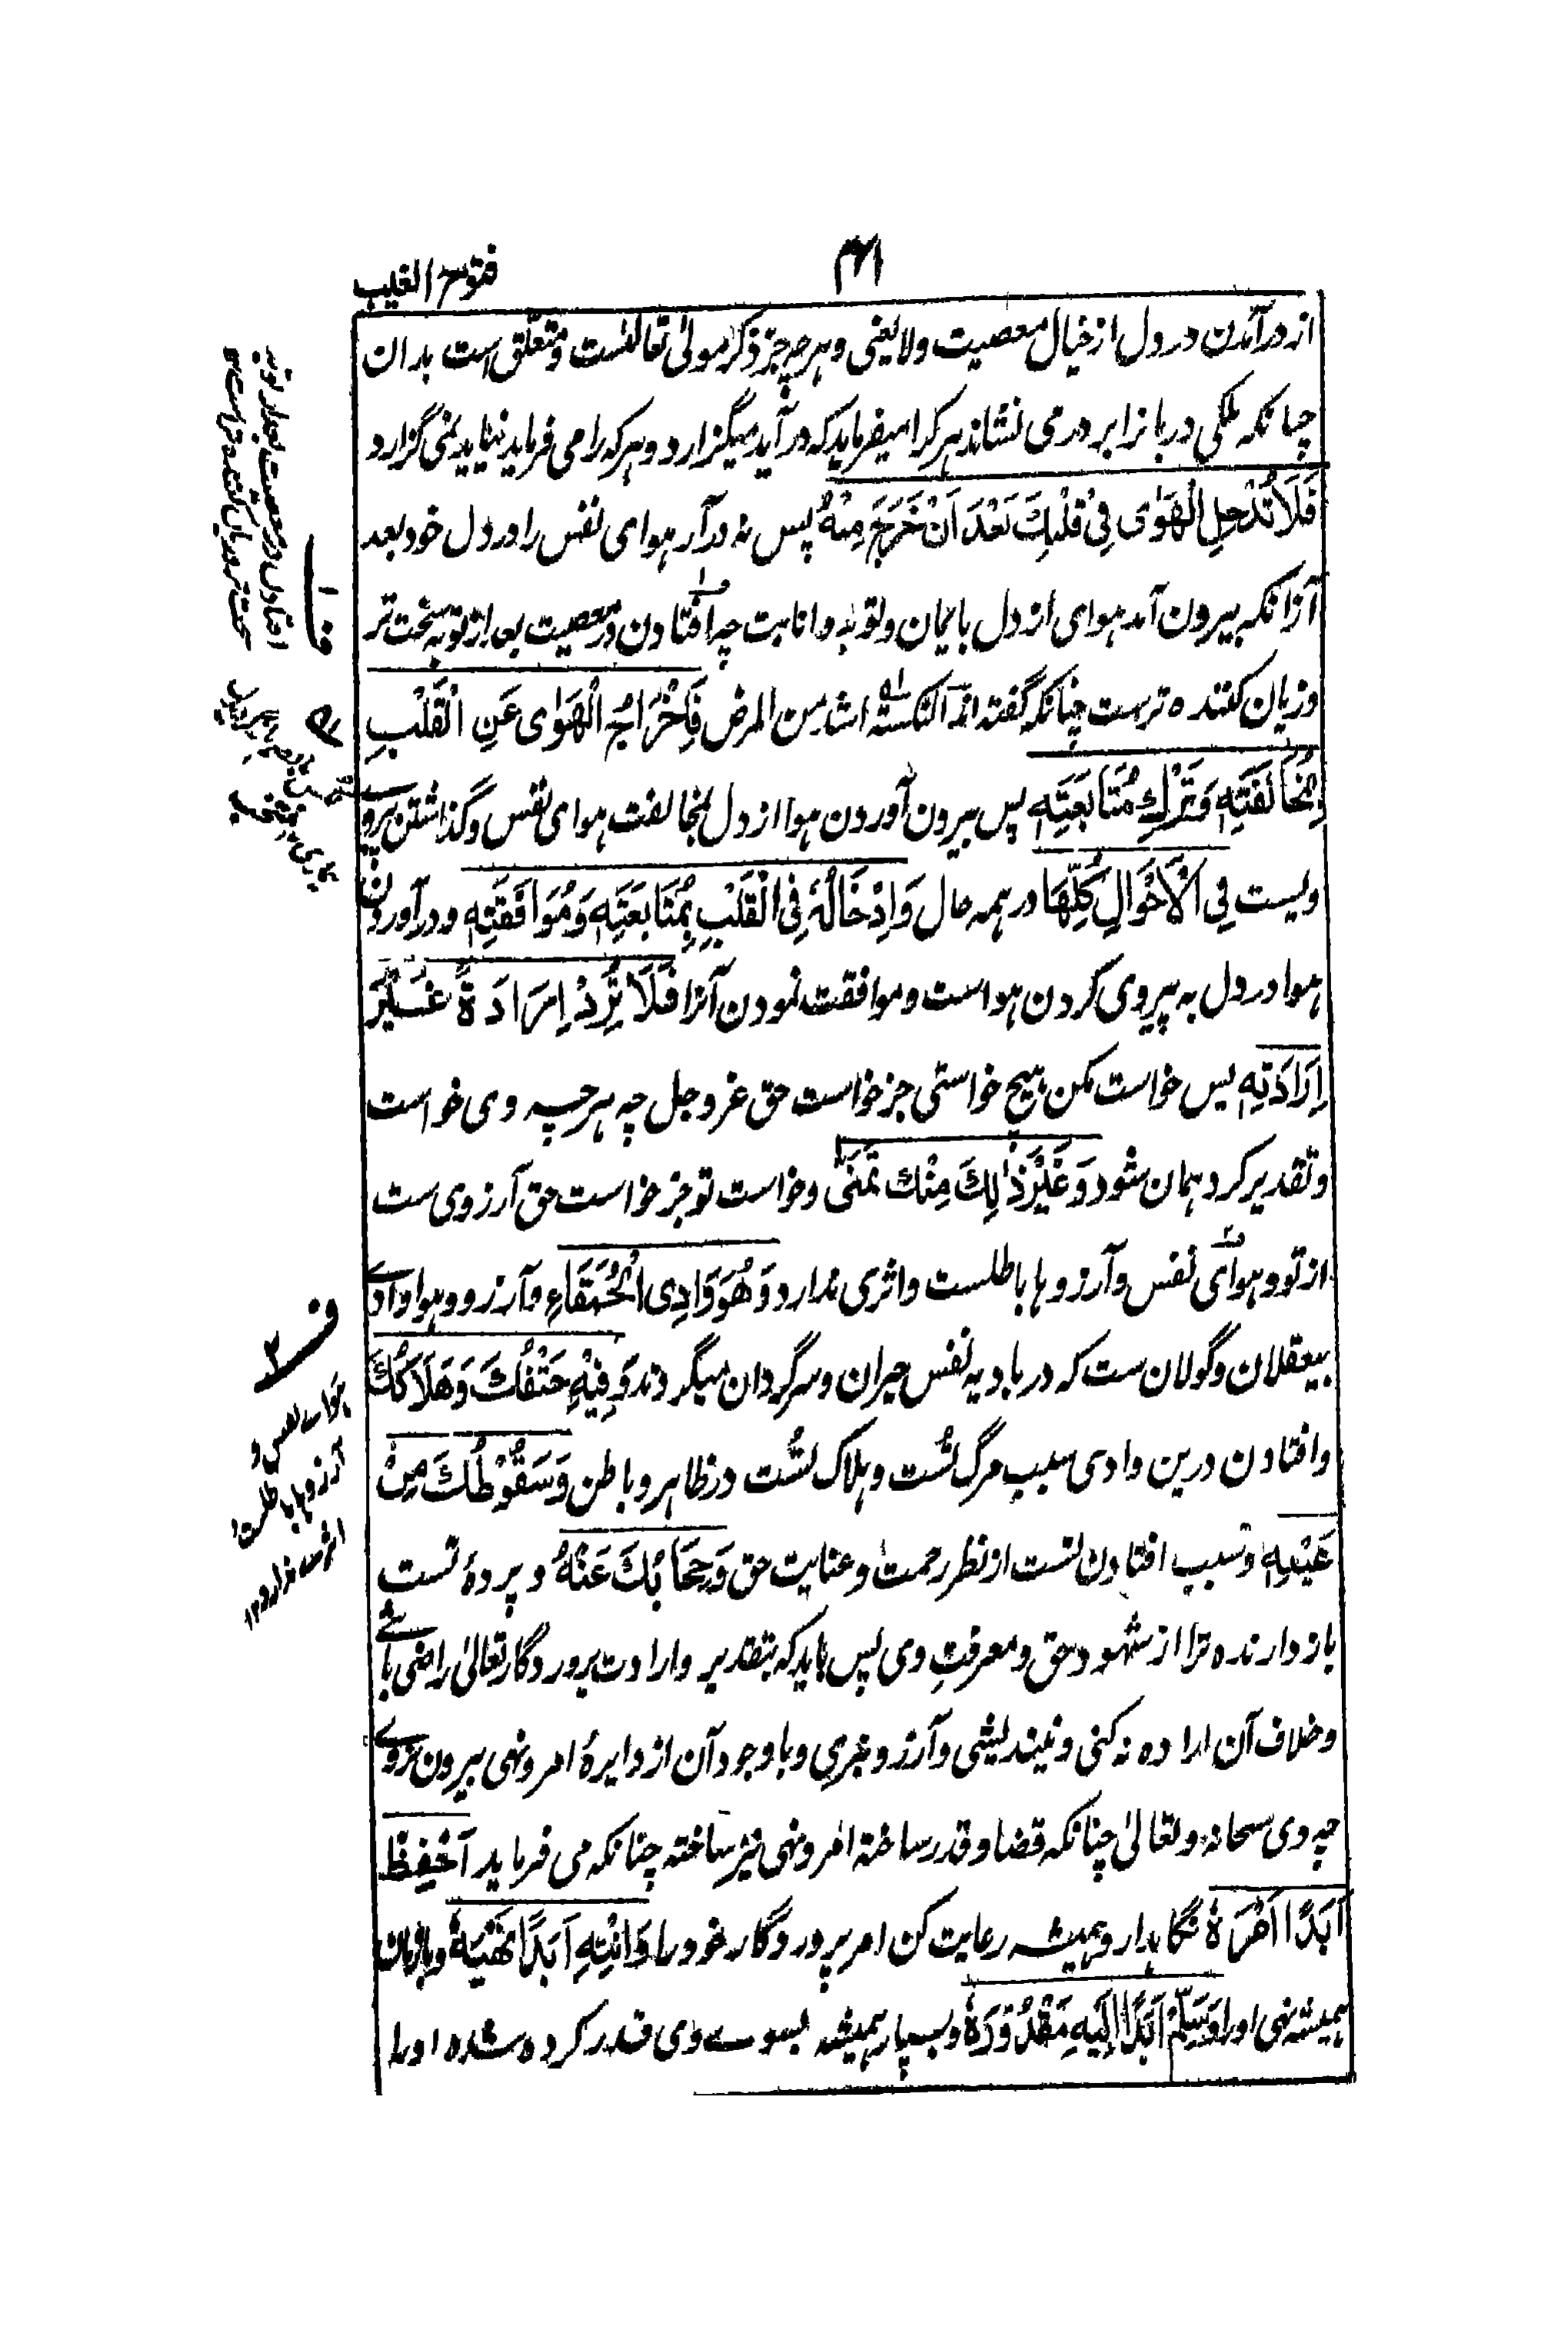 فتوح الغیب
از در آمدن در دل از خیال معصیت و لا یعنی و هر چه جز ذکر مولیٰ تعالیست و متعلق است بدان
چنانکه ملکی دربانرا بر در می نشاند هر کرا میفرماید که در آید میگزارد و هر که را می فرماید نیاید نمی گزارد
فَلَا تُدْخِلِ الْهَوٰى فِىْ قَلْبِكَ بَعْدَ اَنْ خَرَجَ مِنْهُ پس نه در آر هوای نفس را در دل خود بعد
آزانکه بیرون آمد هوای از دل بایمان و توبه و انابت چه افتادن در معصیت بعد از توبه سخت تر
و زیان کننده ترست چنانکه گفته اند النکسته اشد من المرض فَاِخْرَاجُ الْهَوٰى عَنِ الْقَلْبِ
بِمُخَالَفَتِهٖ وَتَرْكِ مُتَابَعَتِهٖ پس بیرون آوردن هوا از دل بمخالفت هوای نفس و گذاشتن پیروی
ویست فِى الْاَحْوَالِ كُلِّهَا در همه حال وَاِدْخَالُهٗ فِى الْقَلْبِ بِمُتَابَعَتِهٖ وَمُوَافَقَتِهٖ و در آوردن
هوا در دل به پیروی کردن هواست و موافقت نمودن آنرا فَلَا تُرِدْ اِرَادَةً غَيْرَ
اِرَادَتِهٖ پس خواست مکن هیچ خواستی جز خواست حق عز و جل چه هر چه وی خواست
و تقدیر کرد همان شود وَغَيْرُ ذٰلِكَ مِنْكَ تَمَنٍّ و خواست تو جز خواست حق آرزوی ست
از تو و هوای نفس و آرزوها باطلست و اثری ندارد وَهُوَ وَادِى الْحُمَقَاءِ و آرزو و هوا وادے
بیعقلان و گولان ست که در بادیه نفس حیران و سرگردان میگردند وَفِيْهِ حَتْفُكَ وَهَلَاكُكَ
و افتادن درین وادی سبب مرگ تست و هلاک تست در ظاهر و باطن وَسَقُوْطُكَ مِنْ
عَيْنِهٖ و سبب افتادن تست از نظر رحمت و عنایت حق وَحِجَابُكَ عَنْهُ و پردهٔ تست
باز دارنده ترا از شهود حق و معرفت وی پس باید که بتقدیر و ارادت پروردگار تعالیٰ راضی باشے
و خلاف آن اراده نه کنی و نیندیشی و آرزو نبری و با وجود آن از دایرهٔ امر و نهی بیرون نروے
چه وی سبحانه و تعالیٰ چنانکه قضا و قدر ساخته امر و نهی نیز ساخته چنانکه می فرماید اَحْفِظْ
اَبَدًا اَمْرَهٗ نگاهدار و همیشه رعایت کن امر پروردگار خود را وَانْتِهِ اَبَدًا نَهْيَهٗ و بازمان
همیشه نهی او را وَسَلِّمْ اَبَدًا اِلَيْهِ مَقْدُوْرَهٗ و بسپار همیشه بسوے وی قدر کرده شده او را
ف ۱
افتادن در معصیت بعد از توبه
سخت تر و زیان کننده تر است
ف ۲
هوائے نفس و
آرزوها باطلست و
اثرے ندارد ۱۲